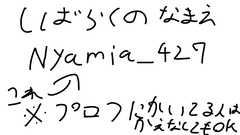 しばらくのなまえ
Nyamia_427
これ
※プロフにかいてる人は
かえなくてもOK